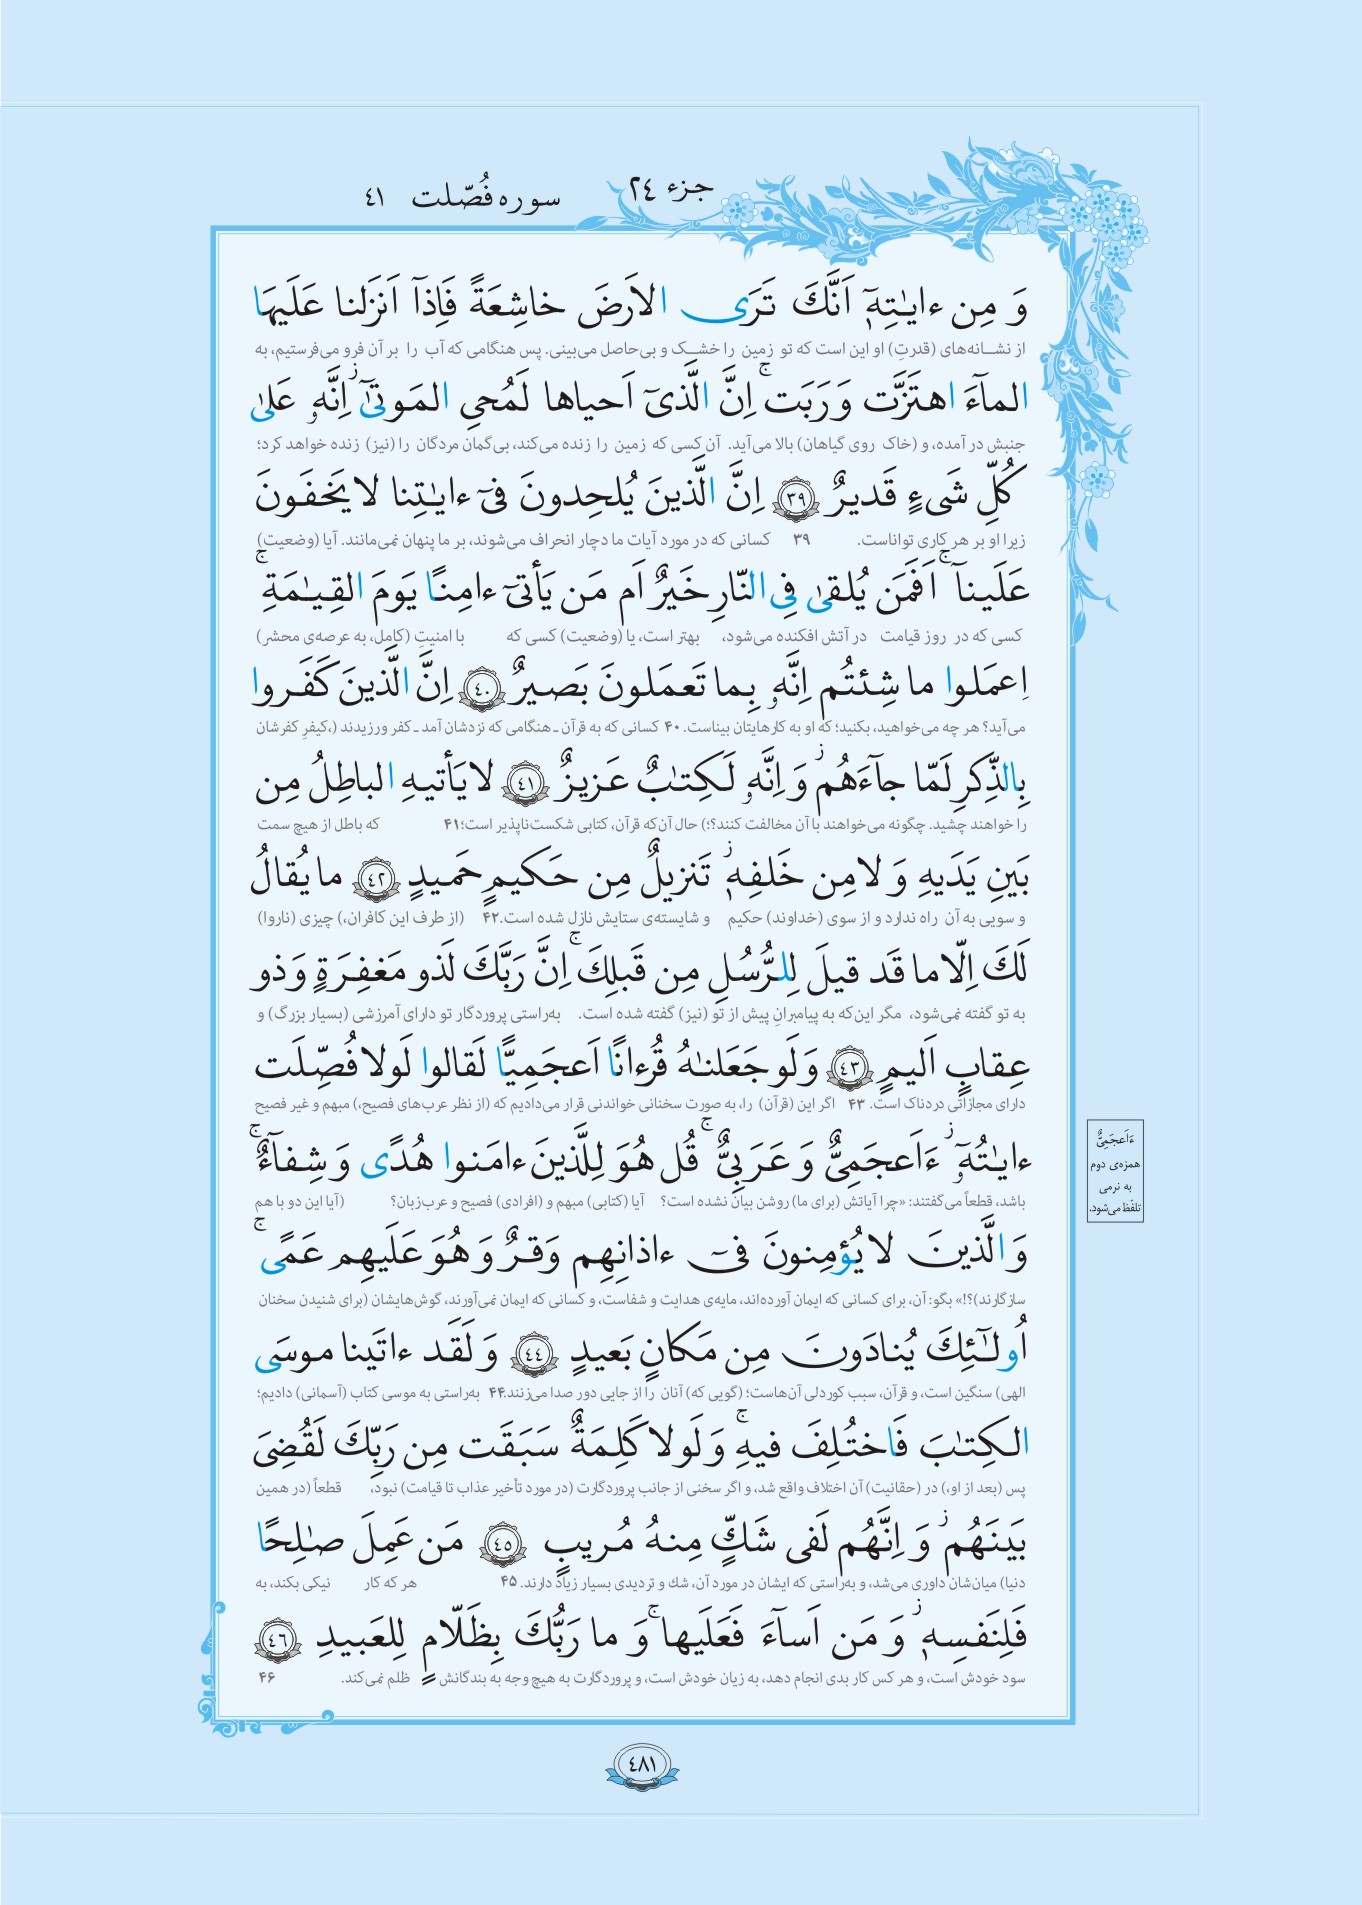 جزء ٢٤
سوره فُصّلت ٤١
وَ مِن ءايٰتِهٖٓ اَنَّكَ تَرَى الاَرضَ خاشِعَةً فَاِذآ اَنزَلنا عَلَيهَا
از نشانه‌های (قدرتِ) او این است که تو زمین را خشک و بی‌حاصل می‌بینی. پس هنگامی که آب را بر آن فرو می‌فرستیم، به
المآءَ اهتَزَّت وَ رَبَت ۚ اِنَّ الَّذىٓ اَحياها لَمُحىِ المَوتىٰٓ ز اِنَّهٗ عَلىٰ
جنبش در آمده، و (خاک روی گیاهان) بالا می‌آید. آن کسی که زمین را زنده می‌کند، بی‌گمان مردگان را (نیز) زنده خواهد کرد؛
كُلِّ شَىءٍ قَديرٌ ٣٩ اِنَّ الَّذينَ يُلحِدونَ فىٓ ءايٰتِنا لا يَخفَونَ
زیرا او بر هر کاری تواناست. ۳۹ کسانی که در مورد آیات ما دچار انحراف می‌شوند، بر ما پنهان نمی‌مانند. آیا (وضعیت)
عَلَينآ ۚ اَفَمَن يُلقىٰ فِى النّارِ خَيرٌ اَم مَن يَأتىٓ ءامِنًا يَومَ القِيٰمَةِ ۚ
کسی که در روز قیامت در آتش افکنده می‌شود، بهتر است، یا (وضعیت) کسی که با امنیتِ (کامل، به عرصه‌ی محشر)
اِعمَلوا ما شِئتُم اِنَّهٗ بِما تَعمَلونَ بَصيرٌ ٤٠ اِنَّ الَّذينَ كَفَروا
می‌آید؟ هر چه می‌خواهید، بکنید؛ که او به کارهایتان بیناست. ۴۰ کسانی که به قرآن ـ هنگامی که نزدشان آمد ـ کفر ورزیدند (،کیفرِ کفرشان
بِالذِّكرِ لَمّا جآءَهُم ز وَ اِنَّهٗ لَكِتٰبٌ عَزيزٌ ٤١ لا يَأتيهِ الباطِلُ مِن
را خواهند چشید. چگونه می‌خواهند با آن مخالفت کنند؟؛) حال آن‌که قرآن، کتابی شکست‌ناپذیر است؛۴۱ که باطل از هیچ سمت
بَينِ يَدَيهِ وَ لا مِن خَلفِهٖ ز تَنزيلٌ مِن حَكيمٍ حَميدٍ ٤٢ ما يُقالُ
و سویی به آن راه ندارد و از سوی (خداوند) حکیم و شایسته‌ی ستایش نازل شده است.۴۲ (از طرف این کافران،) چیزی (ناروا)
لَكَ اِلّا ما قَد قيلَ لِلرُّسُلِ مِن قَبلِكَ ۚ اِنَّ رَبَّكَ لَذو مَغفِرَةٍ وَ ذو
به تو گفته نمی‌شود، مگر این‌که به پیامبرانِ پیش از تو (نیز) گفته شده است. به‌راستی پروردگار تو دارای آمرزشی (بسیار بزرگ) و
عِقابٍ اَليمٍ ٤٣ وَ لَو جَعَلنٰهُ قُرءانًا اَعجَمِيًّا لَقالوا لَولا فُصِّلَت
دارای مجازاتی دردناک است. ۴۳ اگر این (قرآن) را، به صورت سخنانی خواندنی قرار می‌دادیم که (از نظر عرب‌های فصیح،) مبهم و غیر فصیح
ءايٰتُهٗٓ ز ءَاَعجَمِىٌّ وَ عَرَبِىٌّ ۚ قُل هُوَ لِلَّذينَ ءامَنوا هُدًى وَ شِفآءٌ ۚ
باشد، قطعاً می‌گفتند: «چرا آیاتش (برای ما) روشن بیان نشده است؟ آیا (کتابی) مبهم و (افرادی) فصیح و عرب‌زبان؟ (آیا این دو با هم
وَ الَّذينَ لا يُؤمِنونَ فىٓ ءاذانِهِم وَقرٌ وَ هُوَ عَلَيهِم عَمًى ۚ
سازگارند)؟!» بگو: آن، برای کسانی که ایمان آورده‌اند، مایه‌ی هدایت و شفاست، و کسانی که ایمان نمی‌آورند، گوش‌هایشان (برای شنیدن سخنان
اُولٰٓئِكَ يُنادَونَ مِن مَكانٍ بَعيدٍ ٤٤ وَ لَقَد ءاتَينا موسَى
الهی) سنگین است، و قرآن، سبب کوردلی آن‌هاست؛ (گویی که) آنان را از جایی دور صدا می‌زنند.۴۴ به‌راستی به موسی کتاب (آسمانی) دادیم؛
الكِتٰبَ فَاختُلِفَ فيهِ ۚ وَ لَولا كَلِمَةٌ سَبَقَت مِن رَبِّكَ لَقُضِىَ
پس (بعد از او،) در (حقانیت) آن اختلاف واقع شد، و اگر سخنی از جانب پروردگارت (در مورد تأخیر عذاب تا قیامت) نبود، قطعاً (در همین
بَينَهُم ز وَ اِنَّهُم لَفى شَكٍّ مِنهُ مُريبٍ ٤٥ مَن عَمِلَ صٰلِحًا
دنیا) میان‌شان داوری می‌شد، و به‌راستی که ایشان در مورد آن، شك و تردیدی بسیار زیاد دارند. ۴۵ هر که کار نیکی بکند، به
فَلِنَفسِهٖ ز وَ مَن اَسآءَ فَعَلَيها ۚ وَ ما رَبُّكَ بِظَلّامٍ لِلعَبيدِ ٤٦
سود خودش است، و هر کس کار بدی انجام دهد، به زیان خودش است، و پروردگارت به هیچ وجه به بندگانش ظلم نمی‌کند. ۴۶
ءَاَعجَمِىٌّ
همزه‌ی دوم
به نرمی
تلفّظ می‌شود.
٤٨١